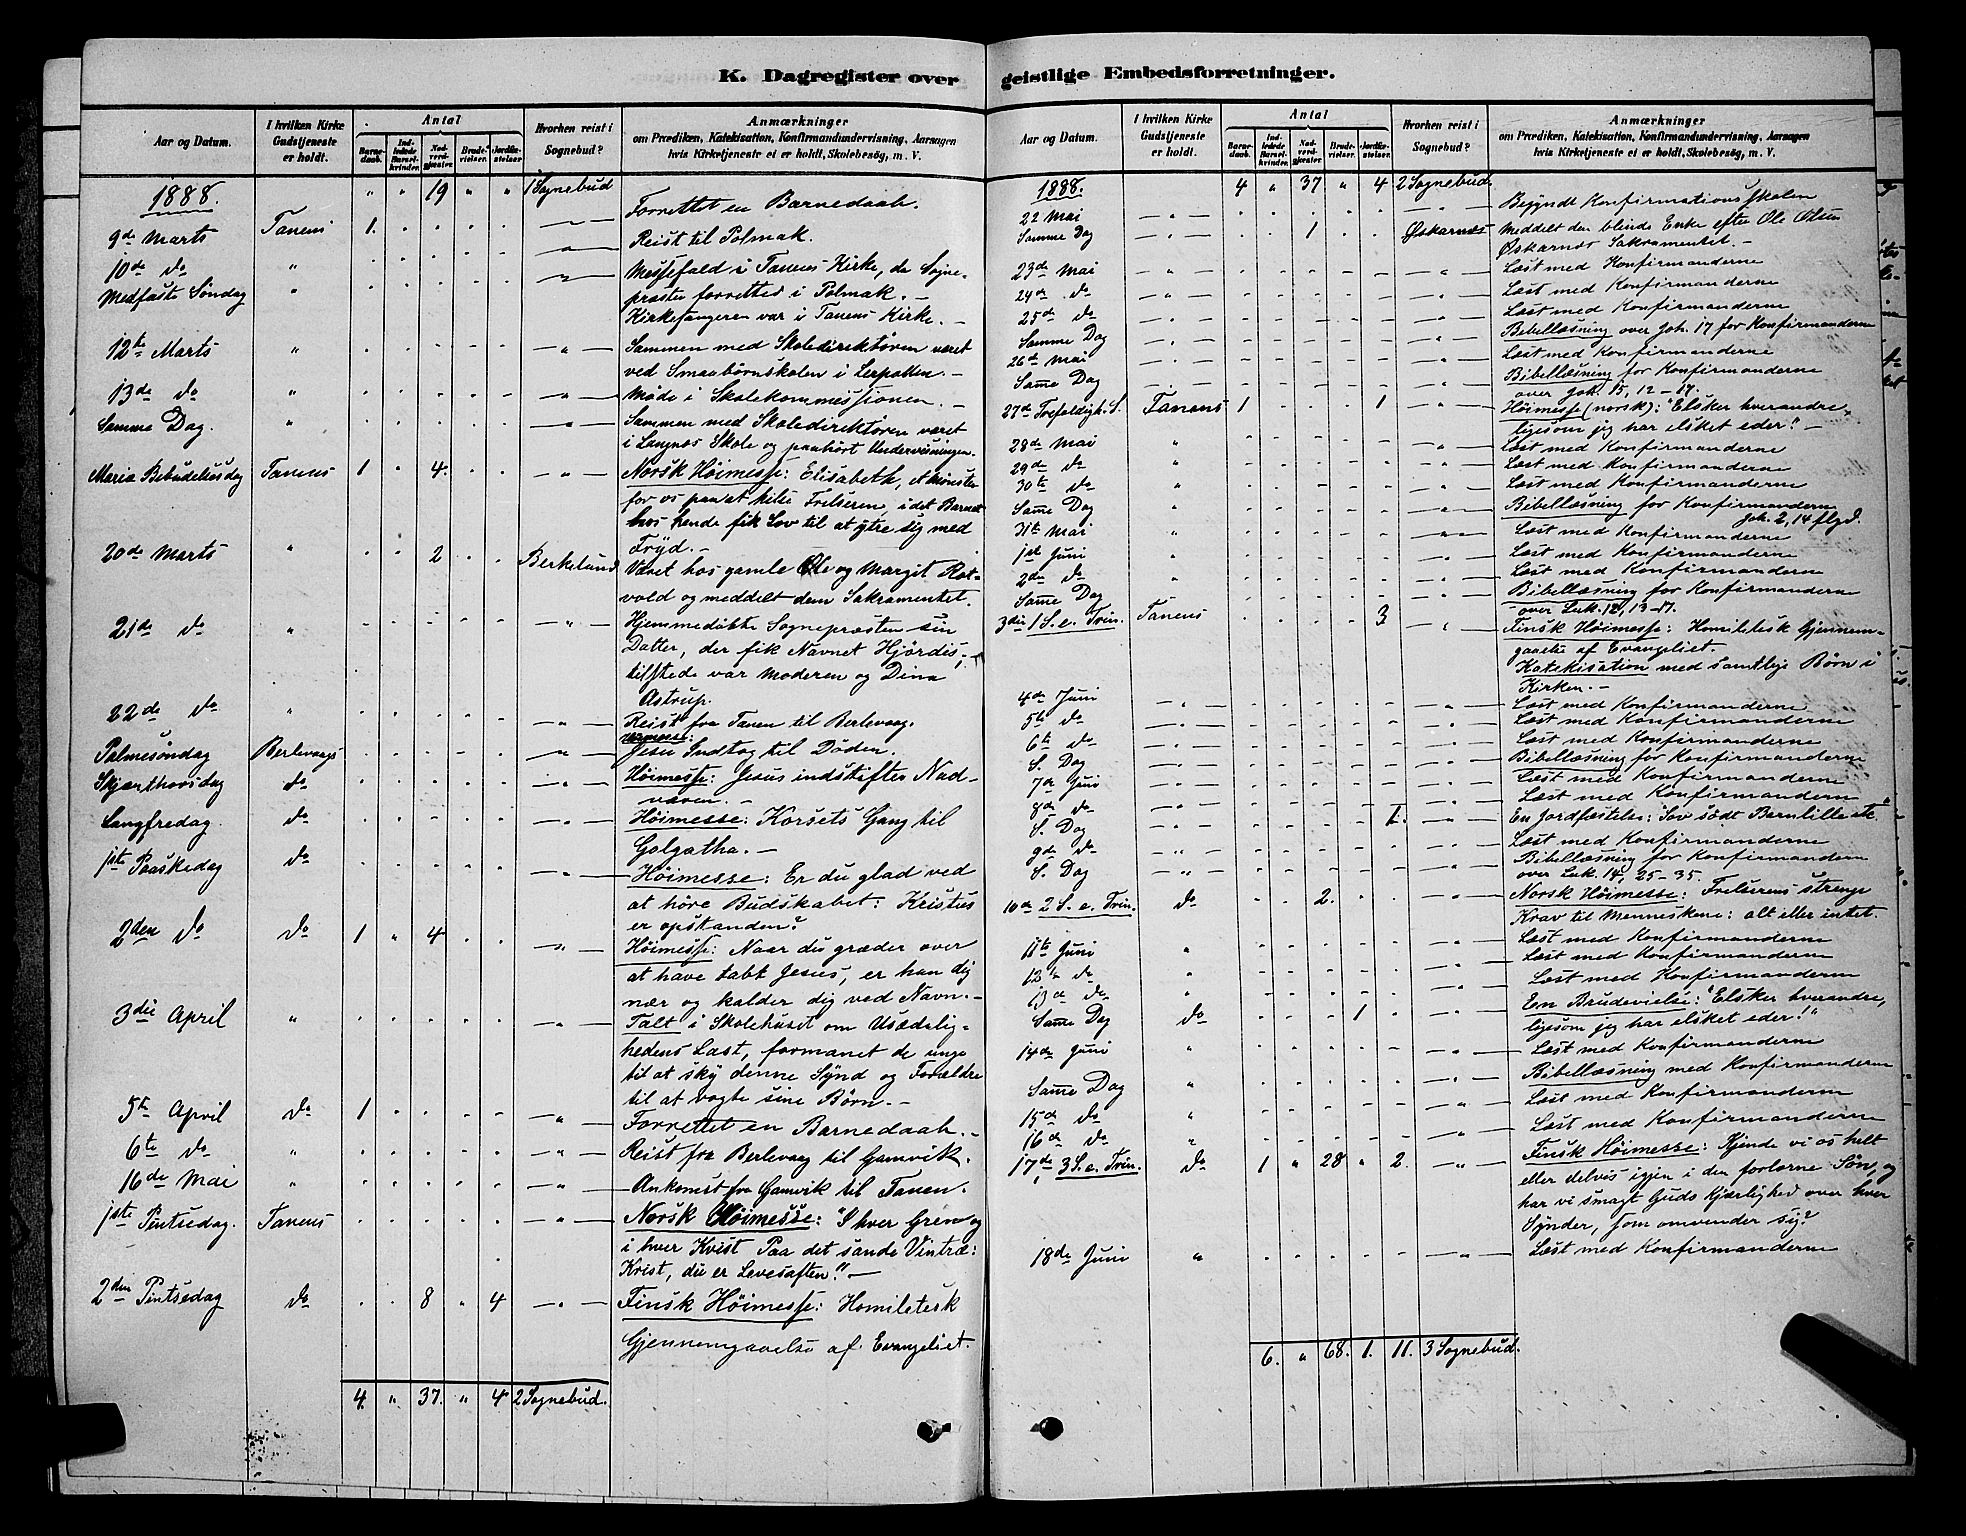 K. Dagregister over geistlige Embedsforretninger.
Aar og Datum. | I hvilken Kirke Gudstjeneste er holdt. | Antal | Barnedaab. | Indledede Barselkvinder. | Nadverdgjæster. | Brudevielser. | Jordfæstelser. | Hvorhen reist i Sognebud? | Anmærkninger om Prædiken, Katekisation, Konfirmandundervisning, Aarsagen hvis Kirketjeneste ei er holdt, Skolebesøg, m. V.
1888. " " 19 " " 1 Sognebud
9de Marts Tanens 1. Forrettet en Barnedaab.
10de do " Reist til Polmak.
Medfaste Søndag " Messefald i Tanens Kirke, da Sogne-
præsten forretted i Polmak. –
Kirkesangeren var i Tanens Kirke. –
12te Marts " Sammen med Skoledirektøren været
ved Smaabørnskolen i Lerpollen. –
13de do " Møde i Skolekommissionen. –
Samme Dag. " Sammen med Skoledirektøren været
i Langnæs Skole og paahørt Undervisningen.
Mariæ Bebudelsesdag Tanens 1 " 4. Norsk Høimesse: Elisabeth, et Mønster
for os paa at hilse Frelseren, i det Barnet
hos hende fik Lov til at ytre sig med
Fryd. –
20de Marts " 2 Berkelund Været hos gamle Ole og Margit Rot-
vold og meddelt dem Sakramentet.
21de do " Hjemmedøbte Sognepræsten sin
Datter, der fik Navnet Hjördis; –
tilstede var Moderen og Dina
Astrup.
22de do " Reist fra Tanen til Berlevaag.
Palmesøndag Berlevaags Jesu Indtog til Døden.
Skjærthorsdag do Høimesse: Jesus indstifter Nad-
væren. –
Langfredag. do Høimesse: Korsets Gang til
Golgatha. –
1ste Paaskedag do Høimesse: Er du glad ved
at høre Budskabet: Kristus
er opstanden?
2den do do 1 " 4 Høimesse: Naar du græder over
at have tabt Jesus, er han dig
nær og kalder dig ved Navn. –
3die April " Talt i Skolehuset om Usædelig-
hedens Last, formanet de unge
til at sky denne Synd og Forældre
til at vogte sine Børn. –
5te April do 1 Forrettet en Barnedaab. –
6te do " Reist fra Berlevaag til Gamvik.
16de Mai " Ankomst fra Gamvik til Tanen.
1ste Pintsedag. Tanens Norsk Høimesse: "I hver Gren og
i hver Kvist Paa det sande Vintræ:
Krist, du er Levesaften!" –
2den Pintsedag do 8 " 4 Finsk Høimesse: Homiletisk
Gjennemgaaelse af Evangeliet.
4. " 37. " 4 2 Sognebud.
Aar og Datum. | I hvilken Kirke Gudstjeneste er holdt. | Antal | Barnedaab. | Indledede Barselkvinder. | Nadverdgjæster. | Brudevielser. | Jordfæstelser. | Hvorhen reist i Sognebud? | Anmærkninger om Prædiken, Katekisation, Konfirmandundervisning, Aarsagen hvis Kirketjeneste ei er holdt, Skolebesøg, m. V.
1888. 4 " 37 " 4 2 Sognebud.
22 Mai Begyndt Konfirmationsskolen
Samme Dag 1 Øskarnæs Meddelt den blinde Enke efter Ol. Olsen
Øskarnæs Sakramentet. –
23de Mai Læst med Konfirmanderne
24de do Læst med Konfirmanderne
25de do Læst med Konfirmanderne
Samme Dag Bibellæsning over Joh. 17 for Konfirmanderne
26de Mai Læst med Konfirmanderne
Samme Dag Bibellæsning for Konfirmanderne
over Joh. 15, 12–17.
27de Trefoldigh. S. Tanens 1 1 Høimesse (norsk): "Elsker hverandre,
ligesom jeg har elsket eder!" –
28de Mai " Læst med Konfirmanderne
29de do " Læst med Konfirmanderne
30te do " Læst med Konfirmanderne
Samme Dag " Bibellæsning for Konfirmanderne
Joh. 2, 14 flgd.
31te Mai " Læst med Konfirmanderne
1ste Juni " Læst med Konfirmanderne
2de do " Læst med Konfirmanderne
Samme Dag " Bibellæsning for Konfirmanderne
over Luk. 12, 13–17.
3die 1 S. e. Trin. Tanens 3 Finsk Høimesse: Homiletisk Gjennem-
gaaelse af Evangeliet.
Katekisation med samtlige Børn i
Kirken. –
4de Juni Læst med Konfirmanderne
5te do Læst med Konfirmanderne
6te do Læst med Konfirmanderne
S. Dag Bibellæsning for Konfirmanderne
7de Juni Læst med Konfirmanderne
8de do Læst med Konfirmanderne
S. Dag 1. En Jordfæstelse: "Sov sødt Barnlille etc."
9de do Læst med Konfirmanderne
S. Dag Bibellæsning for Konfirmanderne
over Luk. 14, 25–35.
10de 2 S. e. Trin. do 2. Norsk Høimesse: Frelserens strenge
Krav til Menneskene: alt eller intet.
11te Juni " Læst med Konfirmanderne
12te do " Læst med Konfirmanderne
13de do " Læst med Konfirmanderne
Samme Dag do 1 En Brudevielse: "Elsker hverandre,
ligesom jeg har elsket eder!"
14de Juni " Læst med Konfirmanderne
Samme Dag " Bibellæsning med Konfirmanderne
15de do " Læst med Konfirmanderne
16de do " Læst med Konfirmanderne
17de 3 S. e. Trin. do 1 " 28 " 2. Finsk Høimesse: Kjende vi os helt
eller delvis igjen i den forlorne Søn, og
har vi smagt Guds Kjærlighed over hver
Synder, som omvender sig?
18de Juni " Læst med Konfirmanderne
6. " 68. 1. 11. 3 Sognebud.